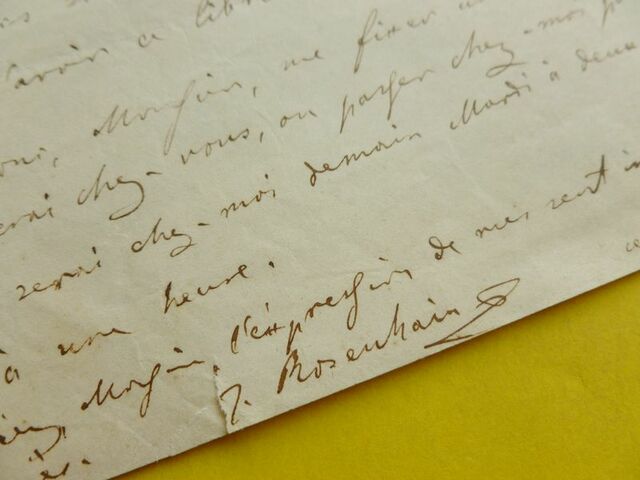 avoir a
Monsieur, me fixer
chez-vous, ou passer chez-moi
serai chez-moi demain Mardi à deux
à une heure.
Monsieur, l'expression de mes sent
J. Rosenhain